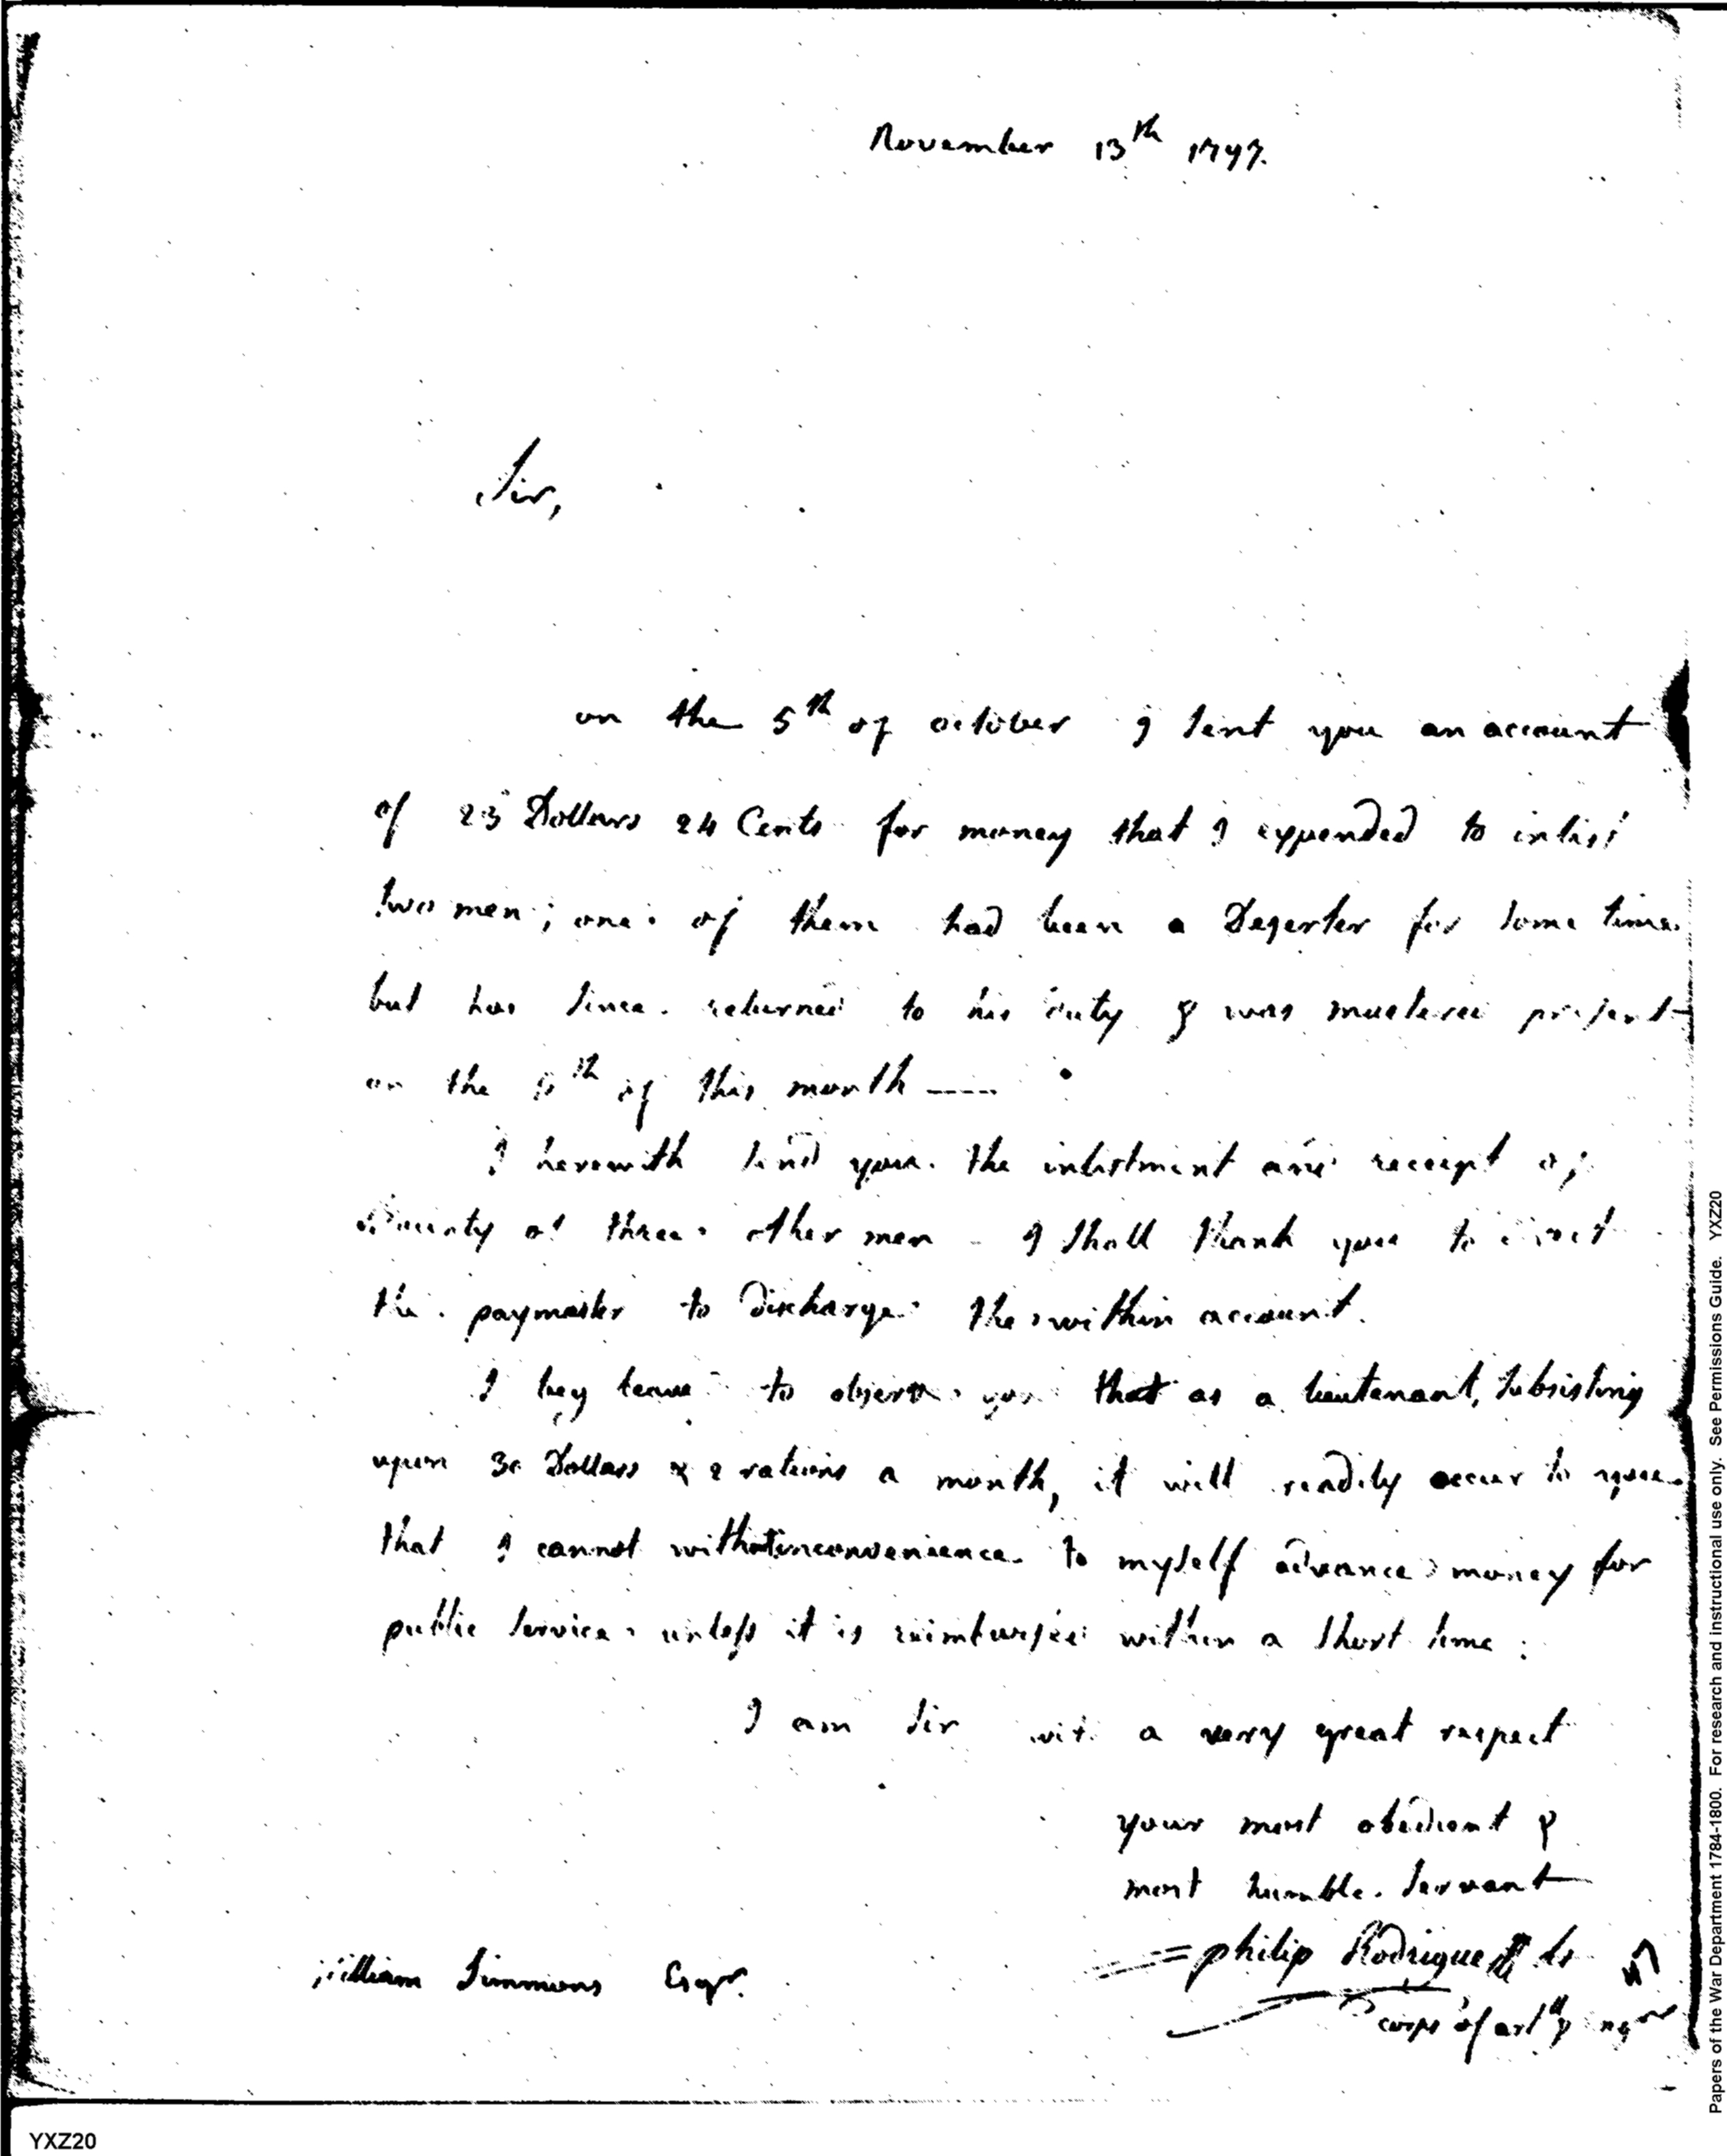 November 13th 1797.
Sir,
on the 5th of october I sent you an account
of 23 Dollars 24 Cents for money that I expended to inlist
two men; one of them had been a Deserter for some time
but has since returned to his duty & was mustered present
on the of this month ——
I herewith send you the inlistment and receipt of
Bounty of three other men - I shall thank you to direct
the paymaster to Discharge the within account.
I beg leave to observe you that as a lieutenant, subsisting
upon 30 Dollars & 2 rations a month, it will readily occur to you
that I cannot without inconvenience to myself advance money for
public service unless it is reimbursed within a short time:
I am Sir with a very great respect
your most obedient &
most humble servant
philip Rodrigue Lt
corps of artly & ngrs
William Simmons Esqr.
YXZ20
Papers of the War Department 1784-1800. For research and instructional use only. See Permissions Guide. YXZ20